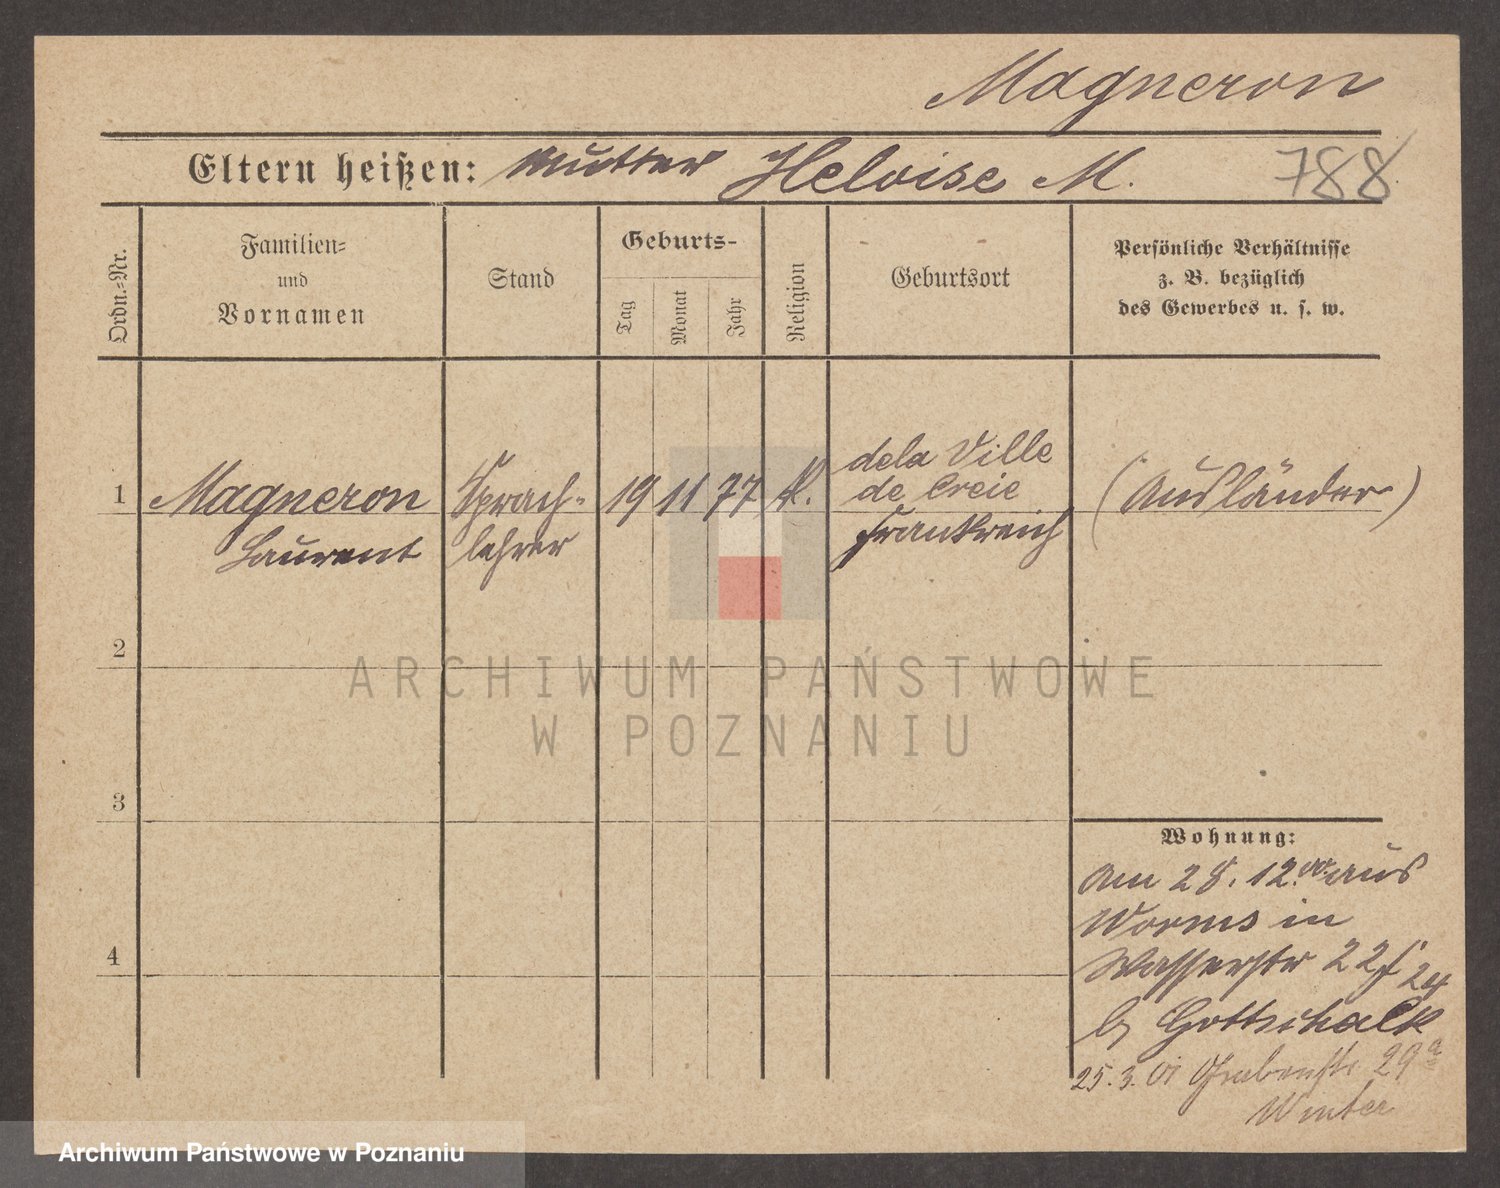 Magneron
Eltern heißen: Mutter Heloise M. 788
Ordn.-Nr.
Familien-
und
Vornamen
Stand
Geburts-
Tag
Monat
Jahr
Religion
Geburtsort
Persönliche Verhältnisse
z. B. bezüglich
des Gewerbes u. s. w.
1
Magneron
Laurent
Sprach-
lehrer
19 11 77 K.
dela Ville
de Creie
Frankreich
(Ausländer)
2
3
4
Wohnung:
Am 28. 12. 00. aus
Worms in
Wasserstr 22/24
b/ Gottschalk
25.3.01 Grabenstr 29a
Winter
ARCHIWUM PAŃSTWOWE
W POZNANIU
Archiwum Państwowe w Poznaniu